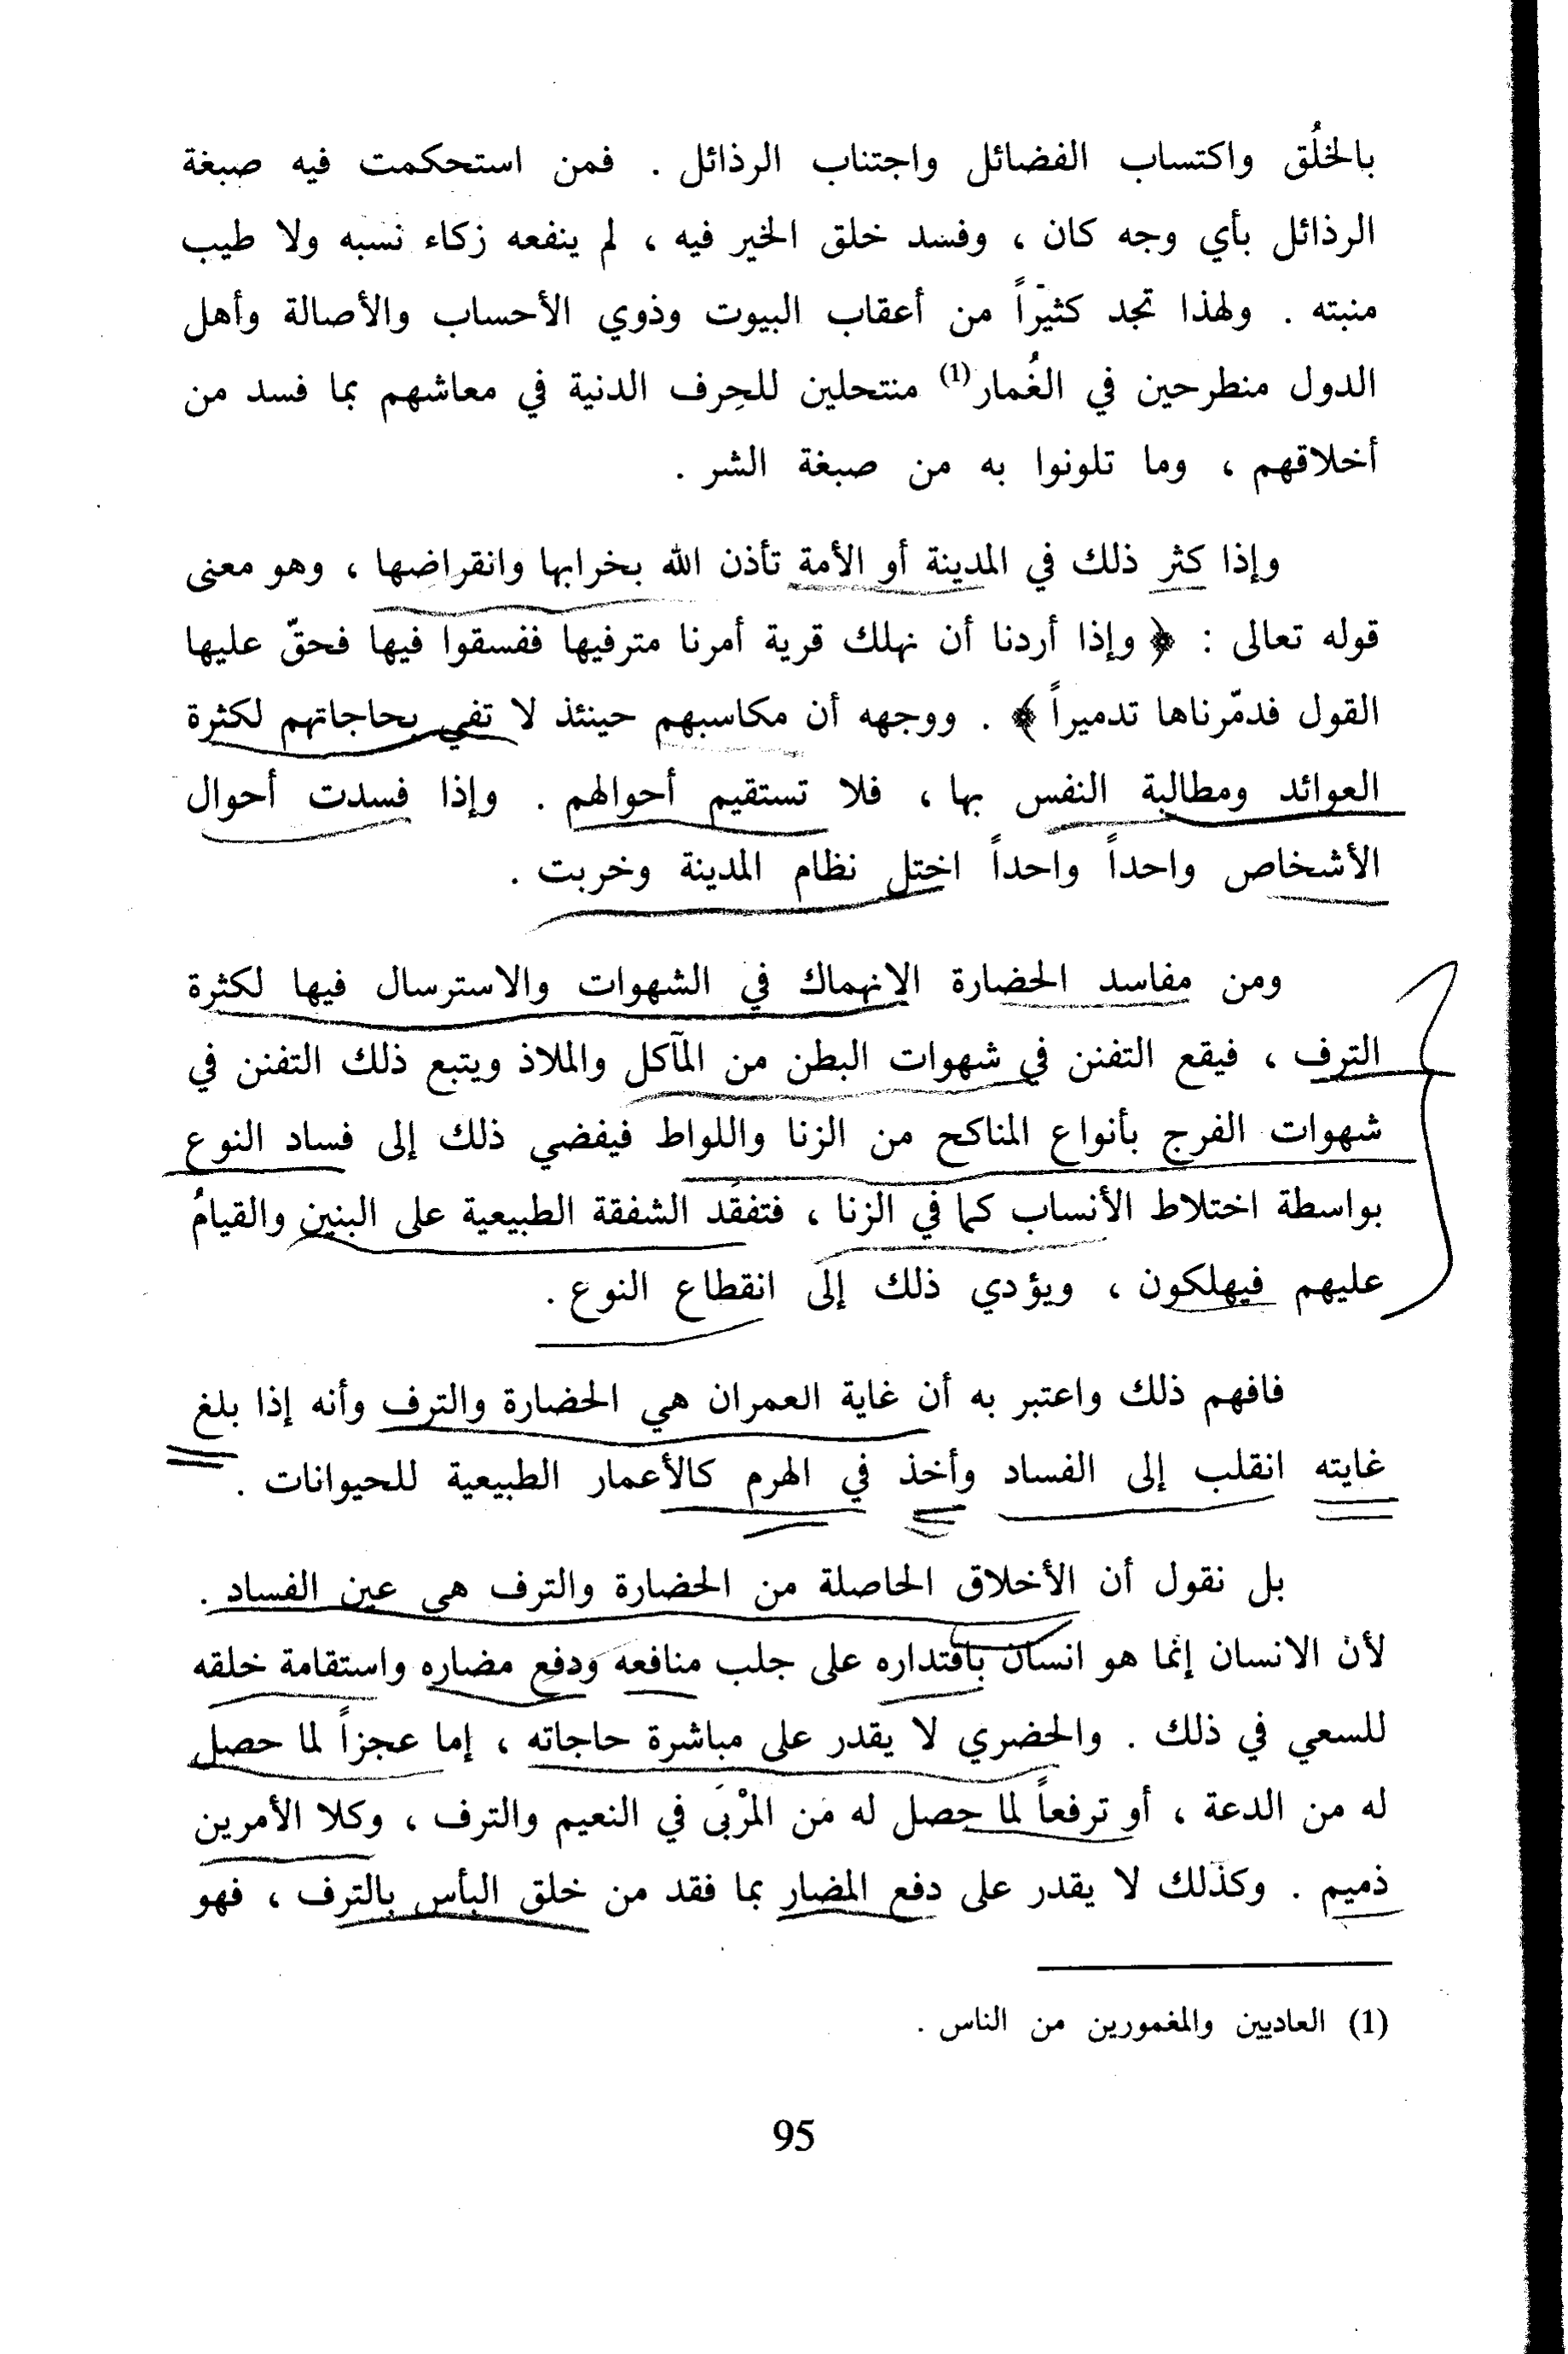 بالخلُق واكتساب الفضائل واجتناب الرذائل . فمن استحكمت فيه صبغة
الرذائل بأي وجه كان ، وفسد خلق الخير فيه ، لم ينفعه زكاء نسبه ولا طيب
منبته . ولهذا تجد كثيراً من أعقاب البيوت وذوي الأحساب والأصالة وأهل
الدول منطرحين في الغُمار(1) منتحلين للحِرف الدنية في معاشهم بما فسد من
أخلاقهم ، وما تلونوا به من صبغة الشر .
وإذا كثر ذلك في المدينة أو الأمة تأذن الله بخرابها وانقراضها ، وهو معنى
قوله تعالى : ﴿ وإذا أردنا أن نهلك قرية أمرنا مترفيها ففسقوا فيها فحقّ عليها
القول فدمّرناها تدميراً ﴾ . ووجهه أن مكاسبهم حينئذ لا تفي بحاجاتهم لكثرة
العوائد ومطالبة النفس بها ، فلا تستقيم أحوالهم . وإذا فسدت أحوال
الأشخاص واحداً واحداً اختل نظام المدينة وخربت .
ومن مفاسد الحضارة الانهماك في الشهوات والاسترسال فيها لكثرة
الترف ، فيقع التفنن في شهوات البطن من المآكل والملاذ ويتبع ذلك التفنن في
شهوات الفرج بأنواع المناكح من الزنا واللواط فيفضي ذلك إلى فساد النوع
بواسطة اختلاط الأنساب كما في الزنا ، فتفقَد الشفقة الطبيعية على البنين والقيامُ
عليهم فيهلكون ، ويؤدي ذلك إلى انقطاع النوع .
فافهم ذلك واعتبر به أن غاية العمران هي الحضارة والترف وأنه إذا بلغ
غايته انقلب إلى الفساد وأخذ في الهرم كالأعمار الطبيعية للحيوانات .
بل نقول أن الأخلاق الحاصلة من الحضارة والترف هي عين الفساد .
لأن الانسان إنما هو انسان باقتداره على جلب منافعه ودفع مضاره واستقامة خلقه
للسعي في ذلك . والحضري لا يقدر على مباشرة حاجاته ، إما عجزاً لما حصل
له من الدعة ، أو ترفعاً لما حصل له من المرْبَى في النعيم والترف ، وكلا الأمرين
ذميم . وكذلك لا يقدر على دفع المضار بما فقد من خلق البأس بالترف ، فهو
(1) العاديين والمغمورين من الناس .
95